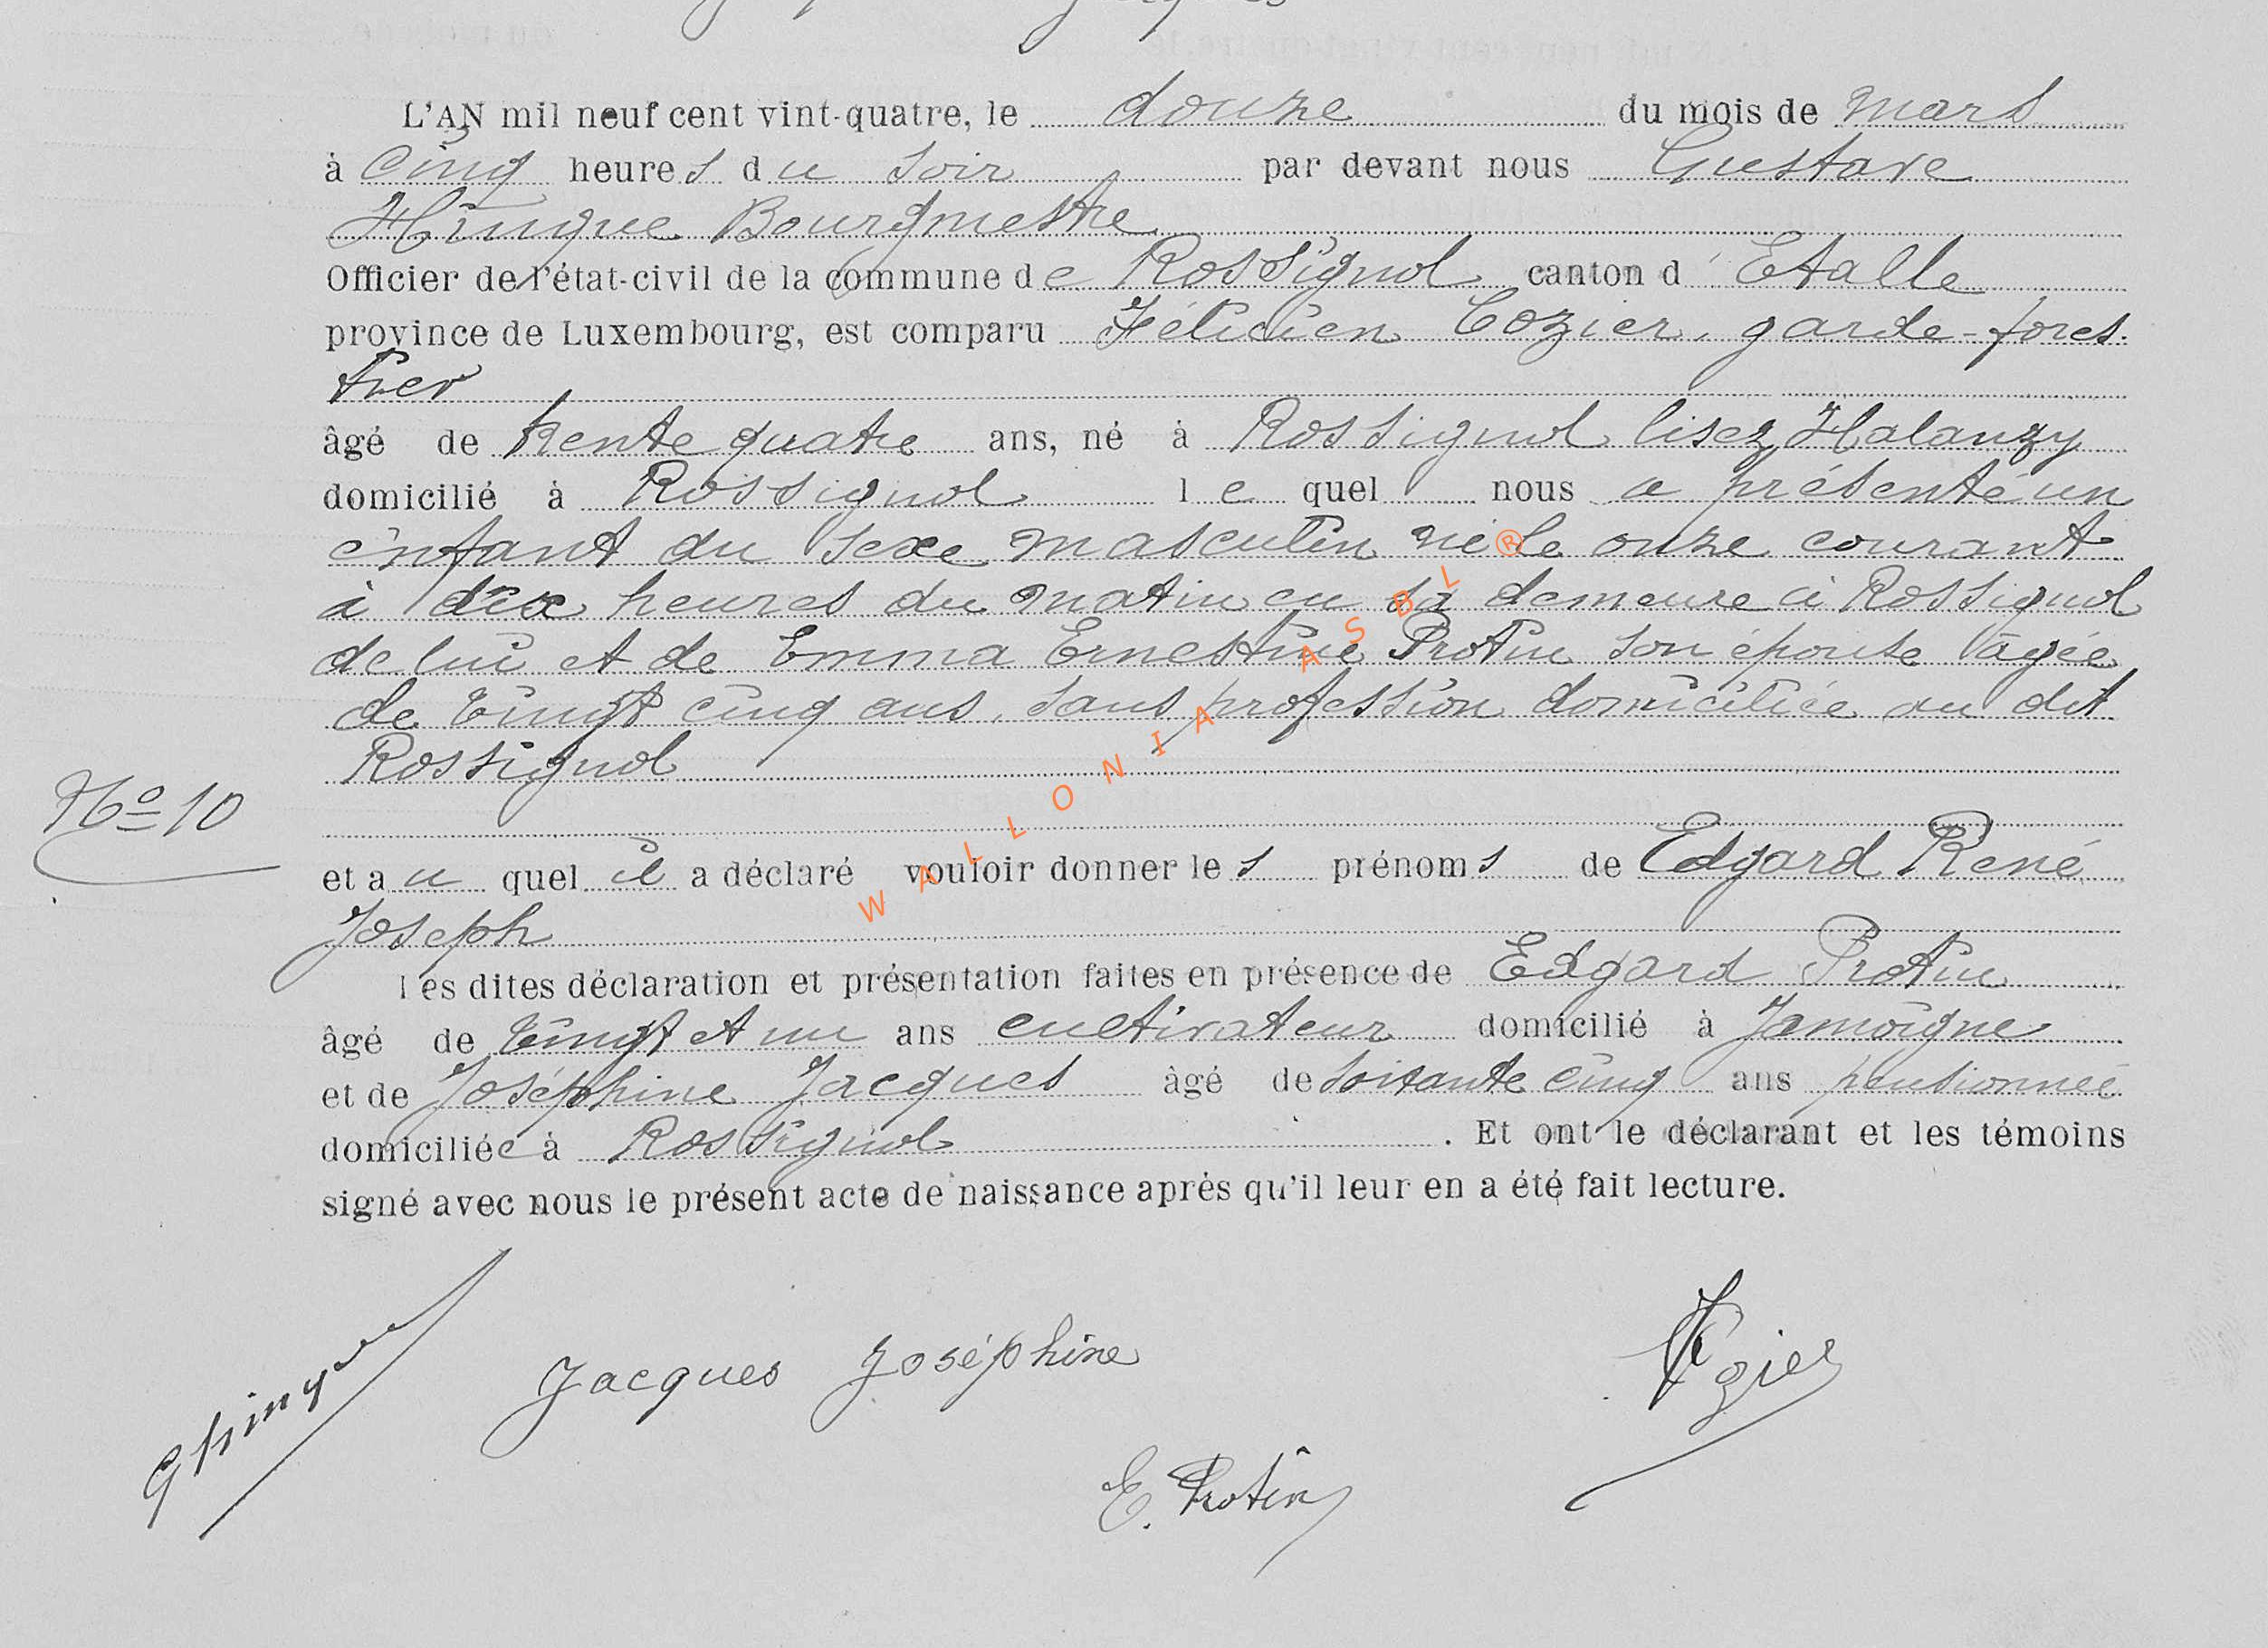 L'AN mil neuf cent vint-quatre, le douze du mois de mars
à cinq heures du soir par devant nous Gustave
Hinque Bourgmestre
Officier de l'état-civil de la commune de Rossignol canton d'Etalle
province de Luxembourg, est comparu Félicien Cozier, garde-fores-
tier
âgé de trente quatre ans, né à Rossignol lisez Halanzy
domicilié à Rossignol le quel nous a présenté un
enfant du sexe masculin né le onze courant
à dix heures du matin en sa demeure à Rossignol
de lui et de Emma Ernestine Protin son épouse âgée
de vingt cinq ans, sans profession domiciliée au dit
Rossignol
No 10
et au quel il a déclaré vouloir donner les prénoms de Edgard René
Joseph
Les dites déclaration et présentation faites en présence de Edgard Protin
âgé de vingt et un ans cultivateur domicilié à Jamoigne
et de Joséphine Jacques âgé de soixante cinq ans pensionnée
domiciliée à Rossignol . Et ont le déclarant et les témoins
signé avec nous le présent acte de naissance après qu'il leur en a été fait lecture.
GHinque
Jacques Joséphine
E. Protin
WALLONIA ASBL ®